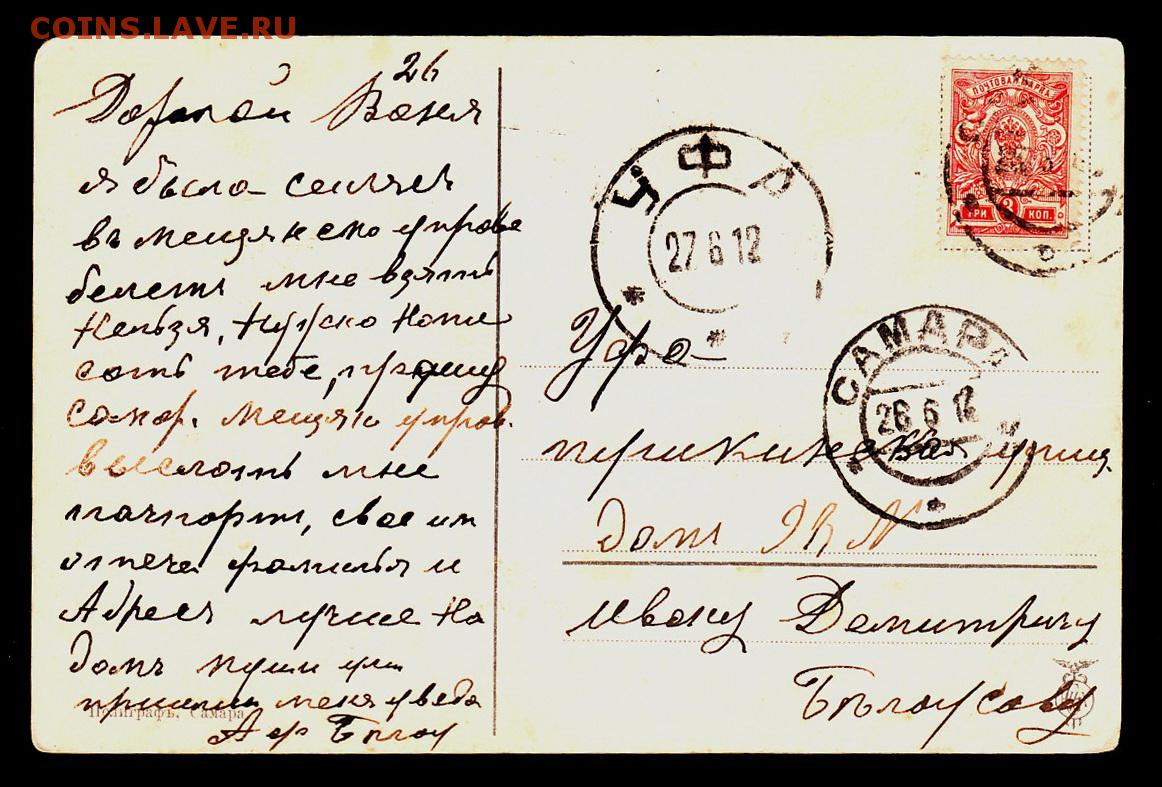 COINS.LAVE.RU
26
Дорогой Ваня
я была сейчас
въ мещянско управе
белетъ мне взять
нельзя, нужно напи
сать тебе, прашу
самар. мещян управ.
выслать мне
пачпортъ, свае им
отече фамилья и
Адресъ лучше на
домъ пиши
меня уведо
Бѣлоу
Полиграфъ. Самара
ПОЧТОВАЯ МАРКА
ТРИ 3 КОП.
УФА
27 6 12
САМАРА
26 6 12
Уфа
пушкинская улиц.
домъ №
ивану Демитричу
Бѣлоусову